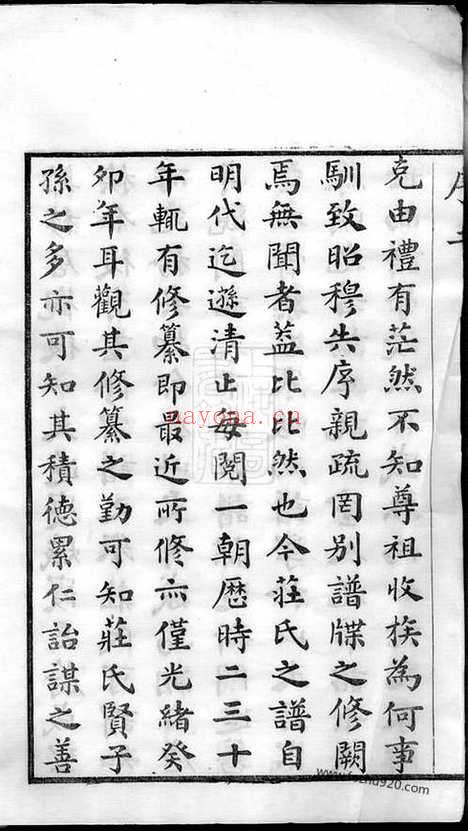 序
克由禮有茫然不知尊祖收族為何事
馴致昭穆失序親疏罔別譜牒之修闕
焉無聞者蓋比比然也今莊氏之譜自
明代迄遜清止每閱一朝歷時二三十
年輒有修纂即最近所修亦僅光緒癸
卯年耳觀其修纂之勤可知莊氏賢子
孫之多亦可知其積德累仁詒謀之善
nayona.cn